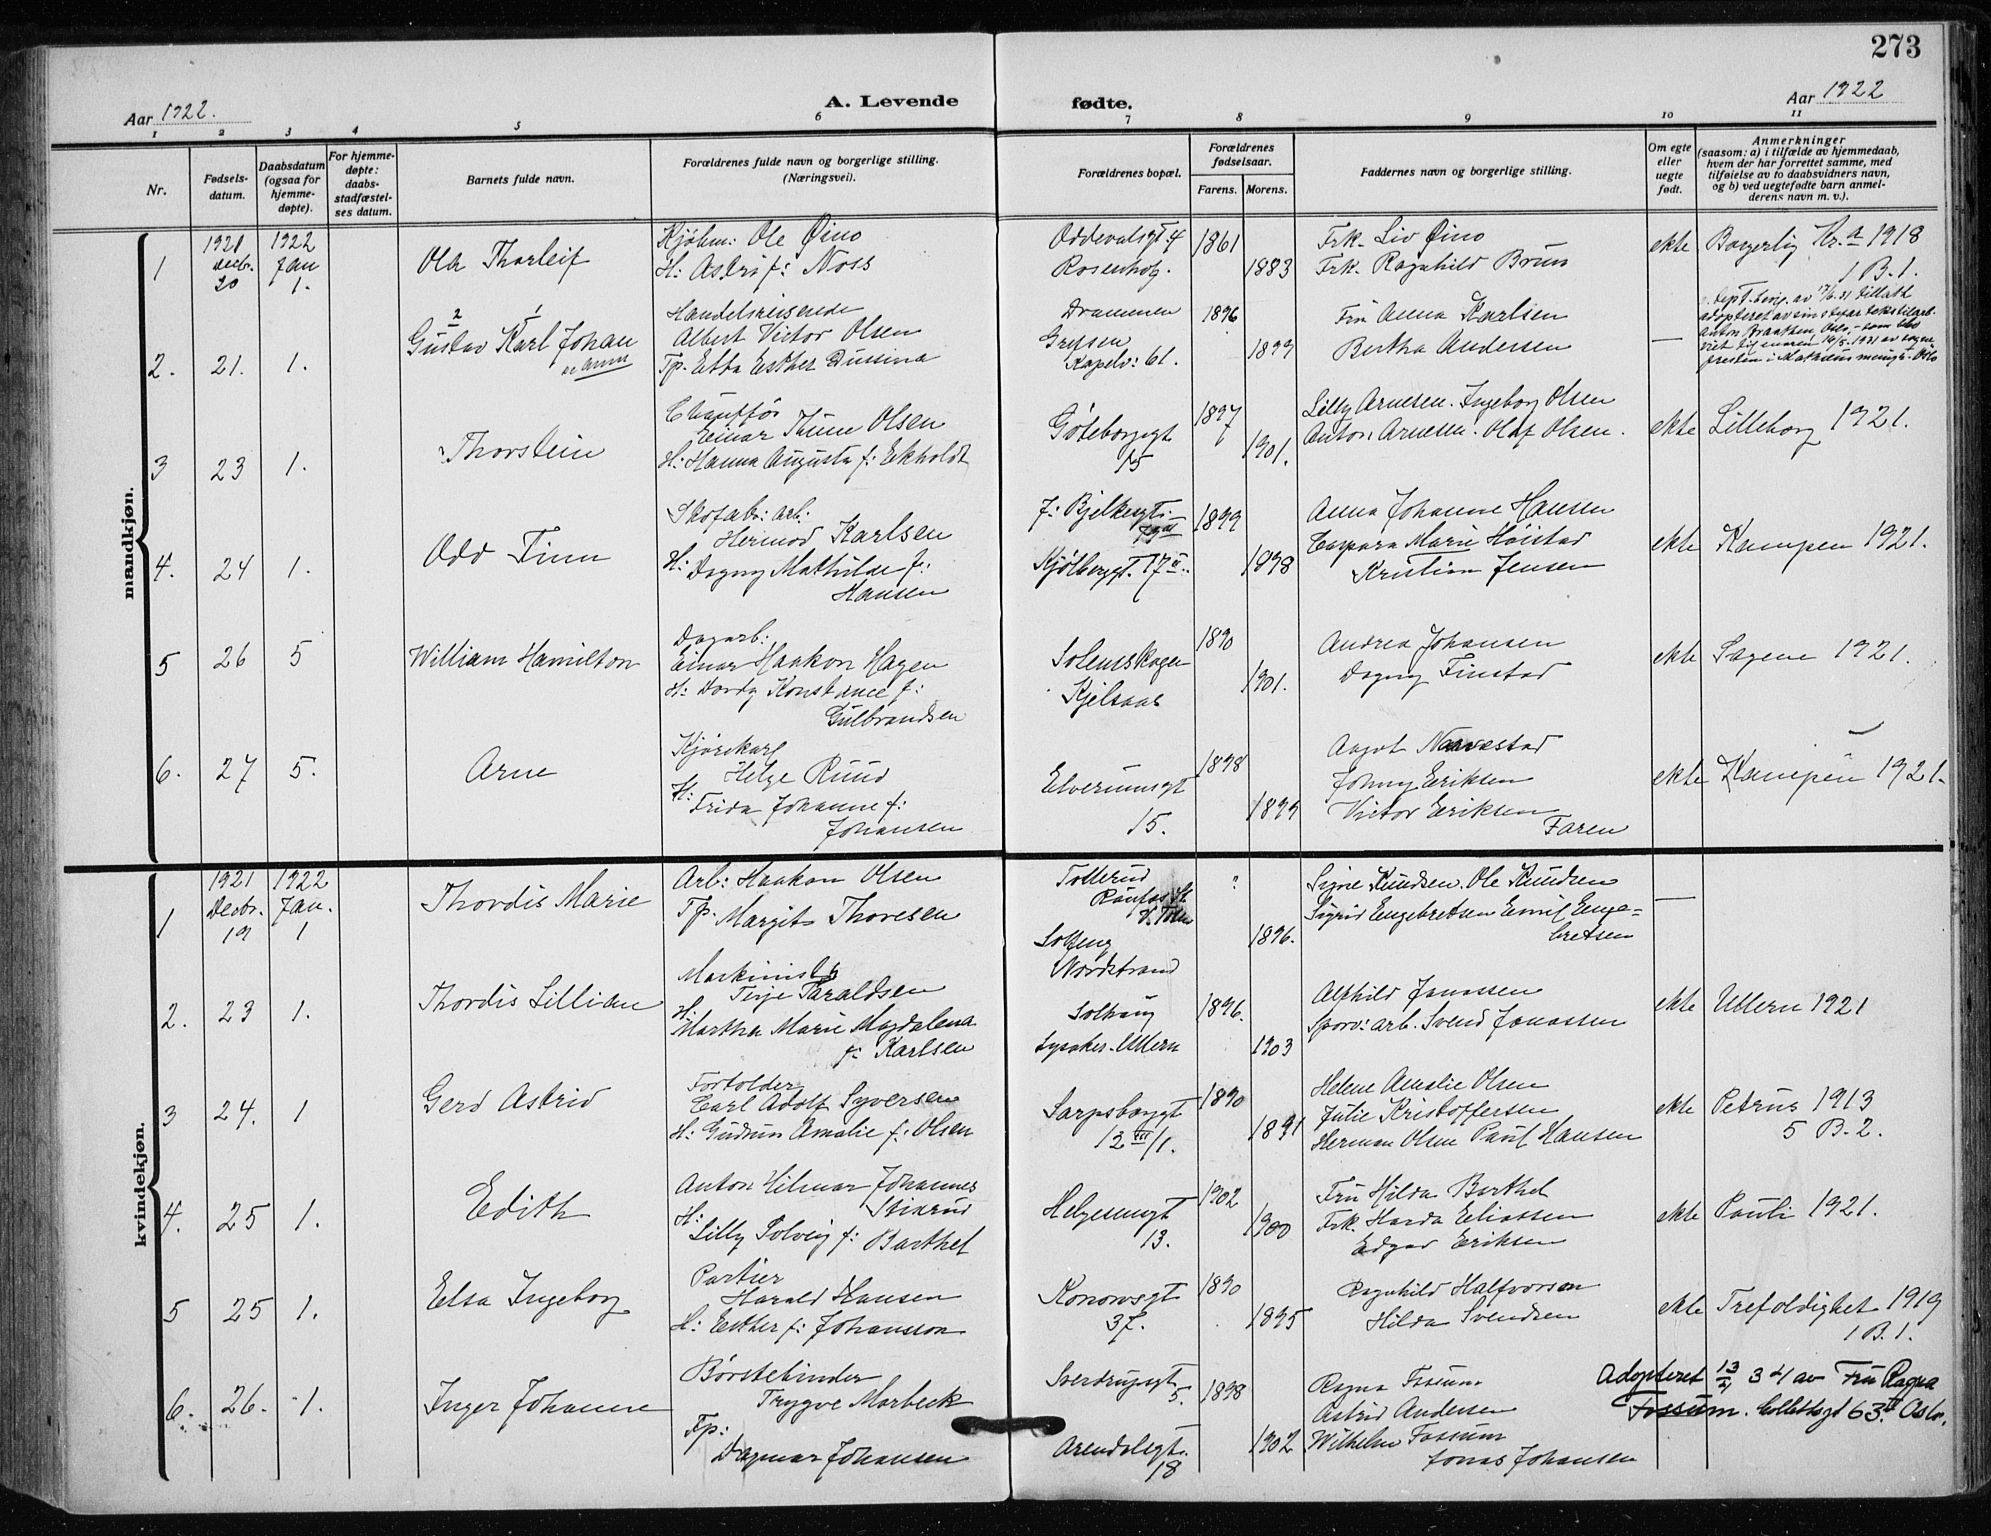 273
Aar 1922.
A. Levende fødte.
Aar 1922
1 2 3 4 5 6 7 8 9 10 11
Nr.
Fødsels-
datum.
Daabsdatum
(ogsaa for
hjemme-
døpte).
For hjemme-
døpte:
daabs-
stadfæstel-
ses datum.
Barnets fulde navn.
Forældrenes fulde navn og borgerlige stilling.
(Næringsvei).
Forældrenes bopæl.
Forældrenes
fødselsaar.
Farens. Morens.
Faddernes navn og borgerlige stilling.
Om egte
eller
uegte
født.
Anmerkninger
(saasom: a) i tilfælde av hjemmedaab,
hvem der har forrettet samme, med
tilføielse av to daabsvidners navn,
og b) ved uegtefødte barn anmel-
derens navn m. v.).
mandkjøn.
1
1921
Decbr.
20
1922
Jan
1.
Ola Thorleif
Kjøbm: Ole Øino
H: Astri f: Noss
Oddevalsgt. 4
Rosenhof.
1861
1883
Frk. Liv Øino
Frk. Ragnhild Bruun
ekte
Borgerlig 1918
1 B. 1.
2.
21.
1.
2 1
Gustav Karl Johan
Handelsreisende
Albert Victor Olsen
Tp. Etta Esther Dussina
Drammen
Grefsen
Kapelv: 61.
1896
1899
Fru Anna Karlsen
Bertha Andersen
—
adopteret av sin stefar
3
23
1.
Thorstein
Chauffør
Einar Thune Olsen
H: Hanna Augusta f: Ekholdt
Göteborggt
15
1897
1901.
Lilly Arnesen. Ingeborg Olsen
Anton Arnesen. Olaf Olsen.
ekte
Lilleborg 1921.
4.
24
1.
Odd Finn
Skofabr: arb:
Hermod Karlsen
H: Dagny Mathilde f:
Hansen
f: Bjelkesgt:
Kjølberggt. 17 II.
1899
1898
Anna Johanne Hansen
Caspara Marie Høistad
Kristian Jensen
ekte
Kampen 1921.
5
26
5
William Hamilton
Dagarb:
Einar Haakon Hagen
H: Dordy Konstance f:
Gulbrandsen
Solemskogen
Kjelsaas
1890
1901.
Andrea Johansen
Dagny Finstad
ekte
Sagene 1921.
6.
27
5.
Arne
Kjørekarl
Helge Ruud
H:
Frida Johanne f:
Johansen
Elverumsgt
15.
1898
1899
Aagot Navestad
Johnny Eriksen
Victor Eriksen
Faren
ekte
Kampen 1921.
kvindekjøn.
1
1921
Decbr.
19
1922
Jan.
1
Thordis Marie
Arb: Haakon Olsen
Tp. Margit Thoresen
Tollerud
Raufos St.
V. Toten
Solfeng
Nordstrand
?
1896.
Signe Knudsen. Ole Knudsen
Sigrid Engebretsen Emil Enge-
bretsen
—
2.
23
1.
Thordis Lillian
Maskinist
Terje Taraldsen
H:
Martha Marie Magdalena
f: Karlsen
Solhaug
Lysaker. Ullern
1896.
1903
Alfhild Jonassen
Sporv: arb. Svend Jonassen
ekte
Ullern 1921
3
24.
1
Gerd Astrid
Fortolder
Carl Adolf Syversen
H: Gudrun Amalie f: Olsen
Sarpsborggt
12 III/1.
1890
1891
Helene Amalie Olsen
Julie Kristoffersen
Herman Olsen Paul Hansen
ekte
Petrus 1913
5 B. 2.
4.
25
1.
Edith
Anton Hilmar Johannes
Stixrud
H:
Lilly Solveig f: Barthel
Helgesensgt
13.
1902
1900
Fru Hilda Barthel
Frk. Harda Eliassen
Edgar Eriksen
ekte
Pauli 1921.
5
25
1.
Elsa Ingeborg
Portier
Harald Hansen
H: Esther f: Johansson
Konowsgt
37.
1890
1895
Ragnhild Halfvorsen
Hilda Svendsen
ekte
Trefoldighet 1919
1 B. 1.
6.
26.
1.
Inger Johanne
Børstebinder
Trygve Morbeck
Fp:
Dagmar Johansen
Sverdrupsgt.
5.
Arendalsgt.
18
1898
1902
Ragna Fossum
Astrid Andersen
Wilhelm Fossum
Jonas Johansen
Adopteret 13/4 34 av Fru Ragna
Fossum. Collettsgt 63 IV Oslo.